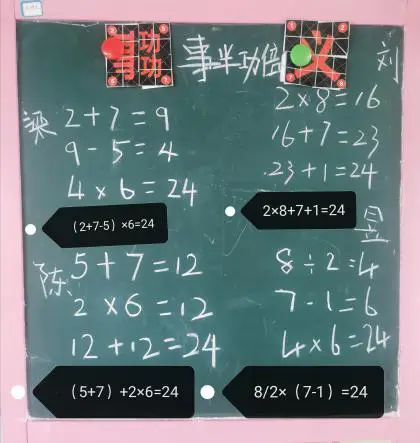 事半功倍 刘
梁 2+7=9
9-5=4
4×6=24
(2+7-5)×6=24
2×8=16
16+7=23
23+1=24
2×8+7+1=24
陈 5+7=12
2×6=12
12+12=24
(5+7)+2×6=24
昱
8÷2=4
7-1=6
4×6=24
8/2×(7-1)=24